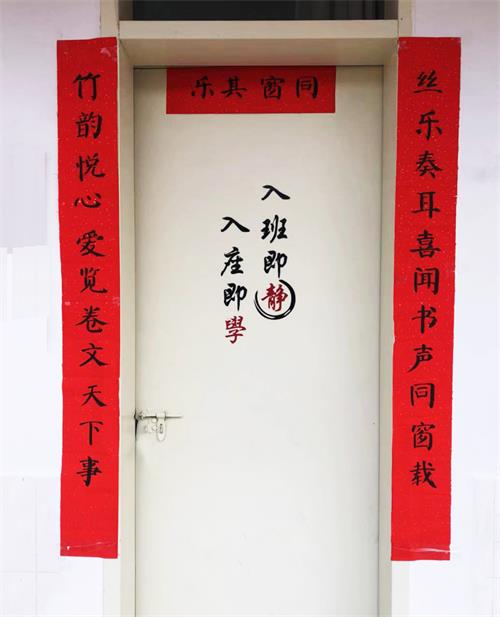 同窗其乐
丝乐奏耳喜闻书声同窗栽
竹韵悦心爱览卷文天下事
入班即静
入座即學